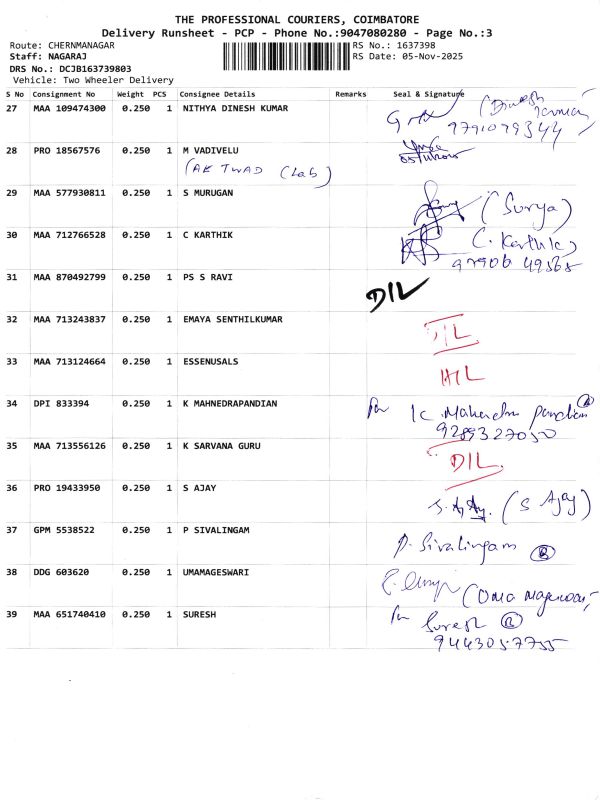 THE PROFESSIONAL COURIERS, COIMBATORE
Delivery Runsheet - PCP - Phone No.:9047080280 - Page No.:3
Route: CHERNMANAGAR RS No.: 1637398
Staff: NAGARAJ RS Date: 05-Nov-2025
DRS No.: DCJB163739803
Vehicle: Two Wheeler Delivery
S No Consignment No Weight PCS Consignee Details Remarks Seal & Signature
27 MAA 109474300 0.250 1 NITHYA DINESH KUMAR (Dinesh
9791079344
28 PRO 18567576 0.250 1 M VADIVELU
(AE TWAD (Lab)
29 MAA 577930811 0.250 1 S MURUGAN (Surya)
30 MAA 712766528 0.250 1 C KARTHIK C. Karthik
97906 49565
31 MAA 870492799 0.250 1 PS S RAVI DIL
32 MAA 713243837 0.250 1 EMAYA SENTHILKUMAR DIL
33 MAA 713124664 0.250 1 ESSENUSALS
34 DPI 833394 0.250 1 K MAHNEDRAPANDIAN K. Mahendra pandian
9289327050
35 MAA 713556126 0.250 1 K SARVANA GURU DIL.
36 PRO 19433950 0.250 1 S AJAY (S Ajay)
37 GPM 5538522 0.250 1 P SIVALINGAM P. Sivalingam
38 DDG 603620 0.250 1 UMAMAGESWARI
39 MAA 651740410 0.250 1 SURESH Suresh
9443057755